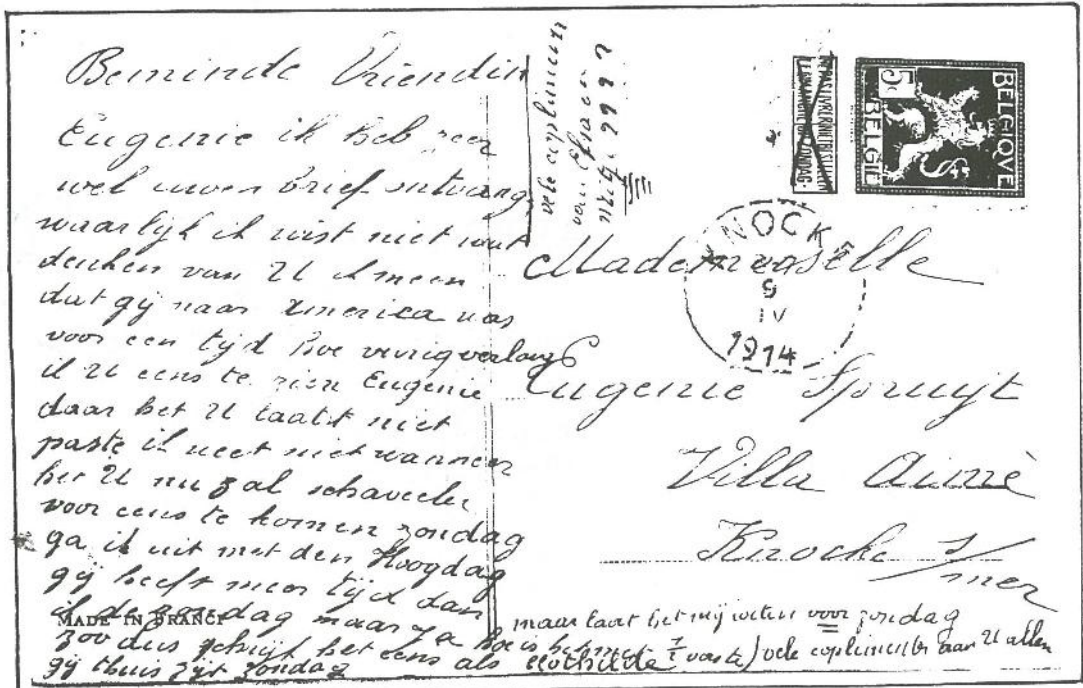 Beminde Vriendin
Eugenie ik heb zeer
wel uwen brief ontvang
waarlijk ik wist niet wat
denken van U ik meen
dat gij naar America was
voor een tijd hoe vurig verlang
ik U eens te zien Eugenie
daar het U laatst niet
paste ik weet niet wanneer
het U nu zal schaveelen
voor eens te komen zondag
ga ik uit met den Hoogdag
gij heeft meer tijd dan
ik de zondag maar ja hoe is het met
zoo dus schrijft het eens als Clothilde
gij thuis zijt zondag
MADE IN FRANCE
maar laat het mij weten voor zondag
vaste) vele coplimenten aan U allen
vele coplimen
van
BELGIQVE
BELGIE
5c
NE PAS LIVRER LE DIMANCHE
ZONDAG
KNOCKE
9
IV
1914
Mademoiselle
Eugenie Spruijt
Villa Aimé
Knocke s/mer